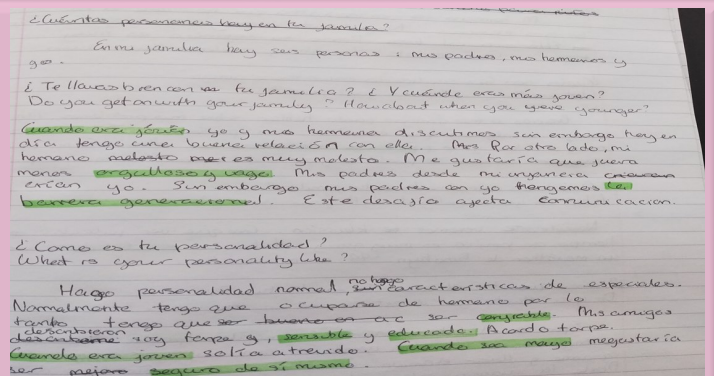 ¿Cuántas personas hay en tu familia?
En mi familia hay seis personas: mis padres, mis hermanos y
yo.
¿Te llevas bien con tu familia? ¿Y cuándo eras más joven?
Do you get on with your family? How about when you were younger?
Cuando era jóven yo y mis hermana discutimos sin embargo hoy en
día tengo una buena relación con ella. Por otro lado, mi
hermano es muy molesto. Me gustaría que fuera
menos orgulloso y vago. Mis padres desde mi infancia
crian yo. Sin embargo mis padres con yo thengemos le
barrera generacional. Este desafío afecta comunicacion.
¿Como es tu personalidad?
What is your personality like?
Hago personalidad normal, no hago caracteristicas de especiales.
Normalmente tengo que ocuparse de hermano por lo
tanto tengo que ser confiable. Mis amigos
describieron soy torpe y, sensible y educado. Acordo torpe.
Cuando era joven solía atrevido. Cuando sea mayo megustaría
ser seguro de sí mismo.